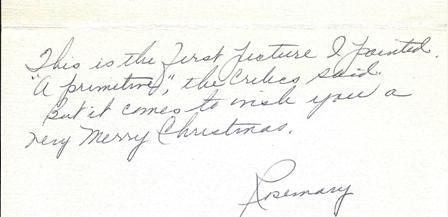 This is the first picture I painted.
"A primitive", the critics said.
But it comes to wish you a
very Merry Christmas.
Rosemary